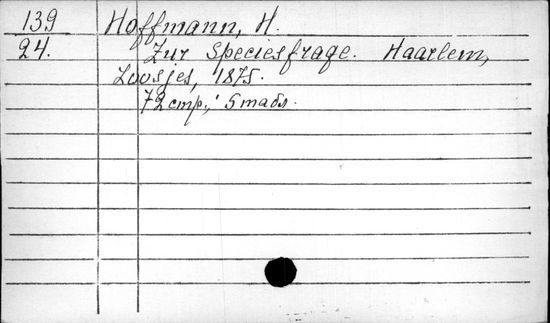 139 Hoffmann, H.
24. Zur Speciesfrage. Haarlem,
Loosjes, 1875.
72 стр.; 5 табл.